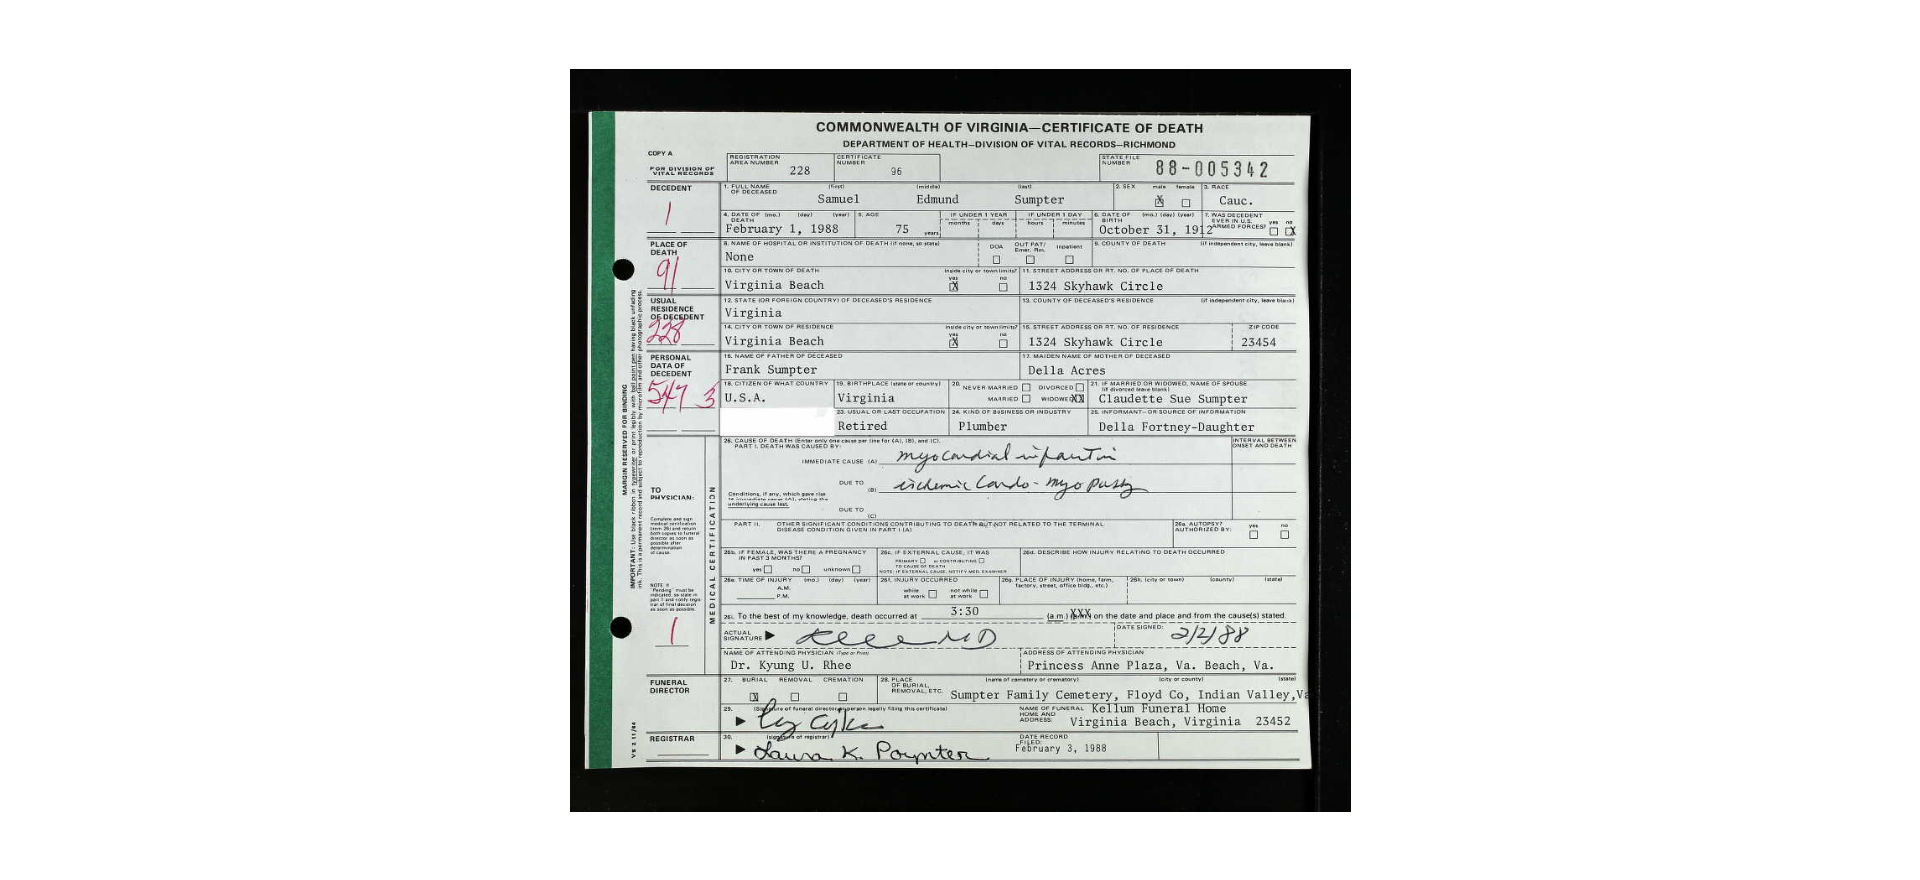 COMMONWEALTH OF VIRGINIA—CERTIFICATE OF DEATH
DEPARTMENT OF HEALTH—DIVISION OF VITAL RECORDS—RICHMOND
COPY A
FOR DIVISION OF VITAL RECORDS
REGISTRATION AREA NUMBER 228
CERTIFICATE NUMBER 96
STATE FILE NUMBER 88-005342
DECEDENT
1
1. FULL NAME OF DECEASED (first) (middle) (last)
Samuel Edmund Sumpter
2. SEX male female
X
3. RACE
Cauc.
4. DATE OF DEATH (mo.) (day) (year)
February 1, 1988
5. AGE
75 years
IF UNDER 1 YEAR months days
IF UNDER 1 DAY hours minutes
6. DATE OF BIRTH (mo.) (day) (year)
October 31, 1912
7. WAS DECEDENT EVER IN U.S. ARMED FORCES? yes no
X
PLACE OF DEATH
91
8. NAME OF HOSPITAL OR INSTITUTION OF DEATH (if none, so state)
None
DOA OUT PAT/ Emer. Rm. Inpatient
9. COUNTY OF DEATH (if independent city, leave blank)
10. CITY OR TOWN OF DEATH inside city or town limits? yes no
Virginia Beach X
11. STREET ADDRESS OR RT. NO. OF PLACE OF DEATH
1324 Skyhawk Circle
USUAL RESIDENCE OF DECEDENT
228
12. STATE (OR FOREIGN COUNTRY) OF DECEASED'S RESIDENCE
Virginia
13. COUNTY OF DECEASED'S RESIDENCE (if independent city, leave blank)
14. CITY OR TOWN OF RESIDENCE inside city or town limits? yes no
Virginia Beach X
15. STREET ADDRESS OR RT. NO. OF RESIDENCE ZIP CODE
1324 Skyhawk Circle 23454
PERSONAL DATA OF DECEDENT
547 3
16. NAME OF FATHER OF DECEASED
Frank Sumpter
17. MAIDEN NAME OF MOTHER OF DECEASED
Della Acres
18. CITIZEN OF WHAT COUNTRY
U.S.A.
19. BIRTHPLACE (state or country)
Virginia
20. NEVER MARRIED DIVORCED
MARRIED WIDOWED XX
21. IF MARRIED OR WIDOWED, NAME OF SPOUSE (if divorced leave blank)
Claudette Sue Sumpter
23. USUAL OR LAST OCCUPATION
Retired
24. KIND OF BUSINESS OR INDUSTRY
Plumber
25. INFORMANT—OR SOURCE OF INFORMATION
Della Fortney-Daughter
MARGIN RESERVED FOR BINDING
MEDICAL CERTIFICATION
TO PHYSICIAN:
Complete and sign medical certification (item 26) and return both copies to funeral director as soon as possible after determination of cause.
26. CAUSE OF DEATH (Enter only one cause per line for (A), (B), and (C).
PART I. DEATH WAS CAUSED BY:
INTERVAL BETWEEN ONSET AND DEATH
IMMEDIATE CAUSE (A) myocardial infarction
DUE TO (B) ischemic Cardo-myopathy
Conditions, if any, which gave rise to immediate cause (A), stating the underlying cause last.
DUE TO (C)
PART II. OTHER SIGNIFICANT CONDITIONS CONTRIBUTING TO DEATH BUT NOT RELATED TO THE TERMINAL DISEASE CONDITION GIVEN IN PART I (A)
26a. AUTOPSY? AUTHORIZED BY: yes no
26b. IF FEMALE, WAS THERE A PREGNANCY IN PAST 3 MONTHS?
yes no unknown
26c. IF EXTERNAL CAUSE, IT WAS
PRIMARY or CONTRIBUTING
TO CAUSE OF DEATH
NOTE: IF EXTERNAL CAUSE, NOTIFY MED. EXAMINER
26d. DESCRIBE HOW INJURY RELATING TO DEATH OCCURRED
26e. TIME OF INJURY (mo.) (day) (year)
A.M.
P.M.
26f. INJURY OCCURRED
while at work not while at work
26g. PLACE OF INJURY (home, farm, factory, street, office bldg., etc.)
26h. (city or town) (county) (state)
NOTE: If "Pending" must be indicated, so state in part I and notify registrar of final decision as soon as possible.
1
26i. To the best of my knowledge, death occurred at 3:30 (a.m.) XXX on the date and place and from the cause(s) stated.
ACTUAL SIGNATURE MD
DATE SIGNED: 2/2/88
NAME OF ATTENDING PHYSICIAN (Type or Print)
Dr. Kyung U. Rhee
ADDRESS OF ATTENDING PHYSICIAN
Princess Anne Plaza, Va. Beach, Va.
FUNERAL DIRECTOR
27. BURIAL REMOVAL CREMATION
X
28. PLACE OF BURIAL, REMOVAL, ETC. (name of cemetery or crematory) (city or county) (state)
Sumpter Family Cemetery, Floyd Co, Indian Valley,Va
29. (Signature of funeral director/person legally filing this certificate)
NAME OF FUNERAL HOME AND ADDRESS:
Kellum Funeral Home
Virginia Beach, Virginia 23452
REGISTRAR
30. (signature of registrar)
Laura K. Poynter
DATE RECORD FILED:
February 3, 1988
VS 2 11/84